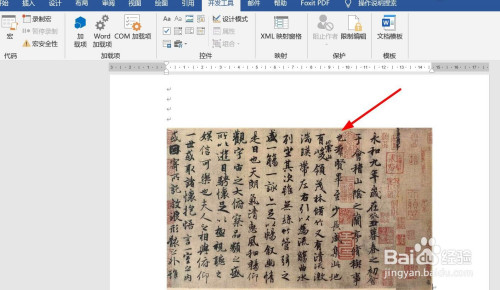 开始
插入
绘图
设计
布局
引用
邮件
审阅
视图
开发工具
帮助
Foxit PDF
操作说明搜索
宏
录制宏
暂停录制
宏安全性
代码
加载项
Word 加载项
COM 加载项
加载项
设计模式
属性
组合
控件
XML 映射窗格
映射
阻止作者
限制编辑
保护
文档模板
模板
永和九年歲在癸丑暮春之初會
于會稽山陰之蘭亭脩禊事
也羣賢畢至少長咸集此地
有崇山峻領茂林脩竹又有清流激
湍暎帶左右引以為流觴曲水
列坐其次雖無絲竹管弦之
盛一觴一詠亦足以暢敘幽情
是日也天朗氣清惠風和暢仰
觀宇宙之大俯察品類之盛
所以遊目騁懷足以極視聽之
娛信可樂也夫人之相與俯仰
一世或取諸懷抱悟言一室之內
或因寄所託放浪形骸之外雖
Baidu 经验
jingyan.baidu.com